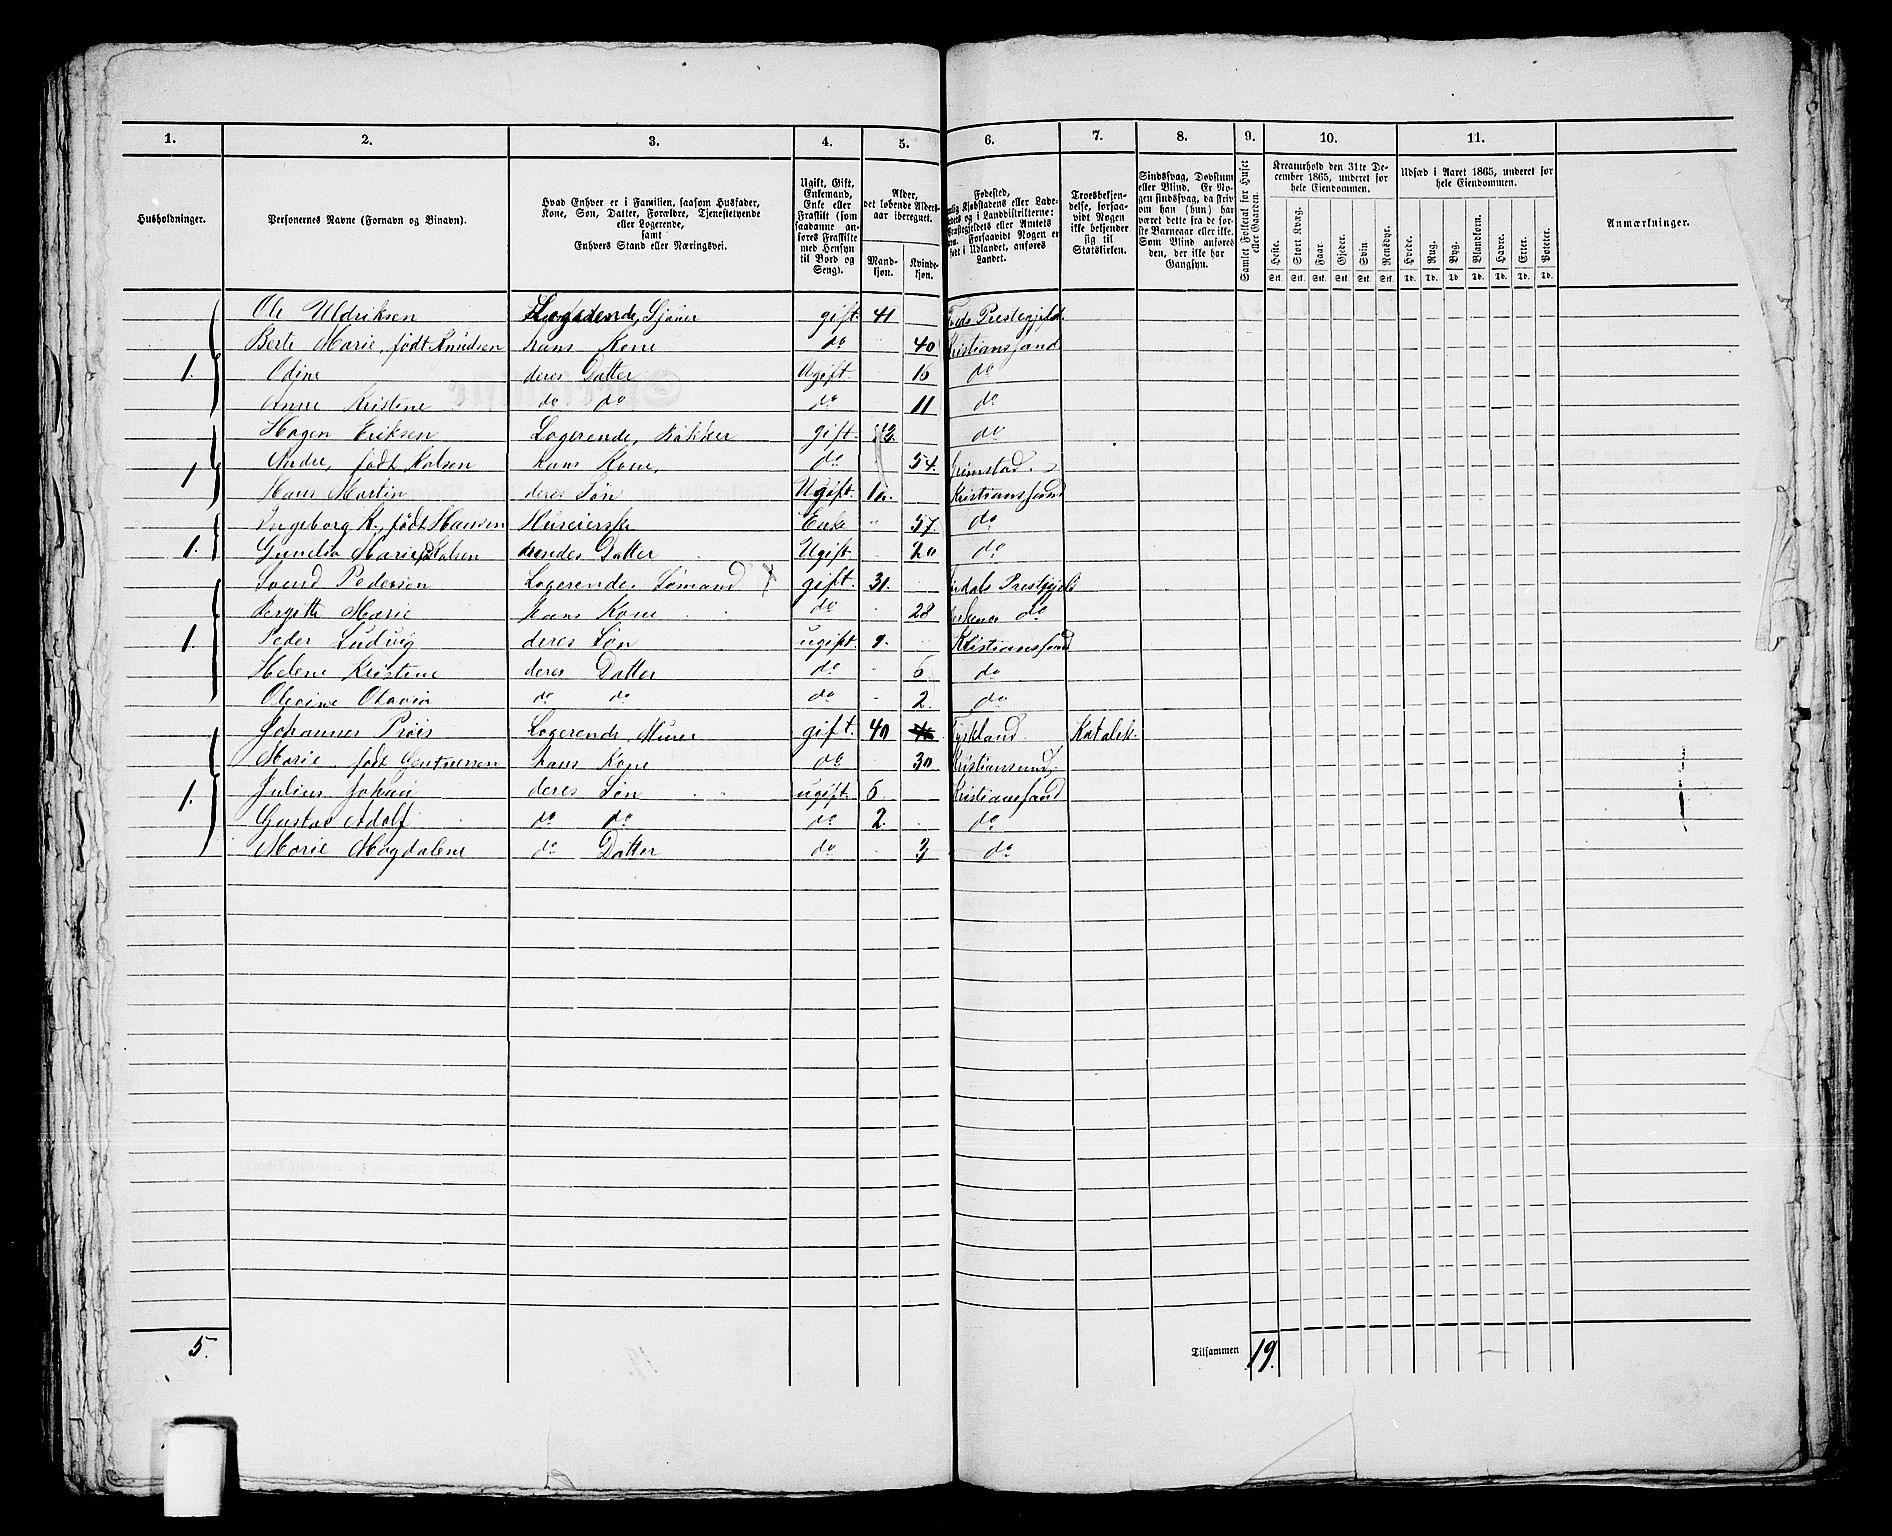 1. 2. 3. 4. 5. 6. 7. 8. 9. 10. 11.
Husholdninger. Personernes Navne (Fornavn og Binavn). Hvad Enhver er i Familien, saasom Husfader, Kone, Søn, Datter, Forældre, Tjenestetyende eller Logerende, samt Enhvers Stand eller Næringsvei. Ugift, Gift, Enkemand, Enke eller Fraskilt (som saadanne anføres Fraskilte med Hensyn til Bord og Seng). Alder, det løbende Aldersaar iberegnet. Mandkjøn. Kvindekjøn. Fødested, Kjøbstadens eller Ladestedets og i Landdistrikterne: Præstegjeldets eller Amtets Navn. Forsaavidt Nogen er født i Udlandet, anføres Landet. Troesbekjendelse, forsaavidt Nogen ikke bekjender sig til Statskirken. Sindssvag, Døvstum eller Blind. Er Nogen sindssvag, da skriv om han (hun) har været dette fra de første Barneaar eller ikke. Som Blind anføres den, der ikke har Gangsyn. Samlet Folketal for Huset eller Gaarden. Kreaturhold den 31te December 1865, underet for hele Eiendommen. Udsæd i Aaret 1865, underet for hele Eiendommen. Anmærkninger.
Heste. Stort Kvæg. Faar. Gjeder. Svin. Rensdyr. Hvede. Rug. Byg. Blandkorn. Havre. Erter. Poteter.
Stk. Stk. Stk. Stk. Stk. Stk. Td. Td. Td. Td. Td. Td. Td.
Ole Uldriksen Logerende, Sjøuer gift. 41 Præstegjeld
Berte Marie, født Knudsen hans Kone do 40 Kristianssand
1. Odine deres Datter Ugift. 16 do
Anne Kristine do do do 11 do
Hagen Eriksen Logerende, gift. do
født hans Kone, do 54. Grimstad.
1 Hans Martin deres Søn Ugift. Kristianssand
Ingeborg K., født Hansen Enke 57. do
1. Marie Datter Ugift 20 do
Svend Pedersen Logerende, Sømand X gift. 31. Prestgjeld
Marie hans Kone do 28 do
1. Peder Ludvig deres Søn ugift. 9. Kristianssand
Helene Kristine deres Datter do 6 do
Otavia do do do 2. do
Johannes Logerende, Murer gift. 40 Tyskland. Katolik
Marie født hans Kone do 30 Kristiansund
1. Julius Johan deres Søn ugift. 5. Kristianssand
Gustav Adolf do do do 2. do
Marie Magdalene do Datter do 3 do
5. Tilsammen 19.